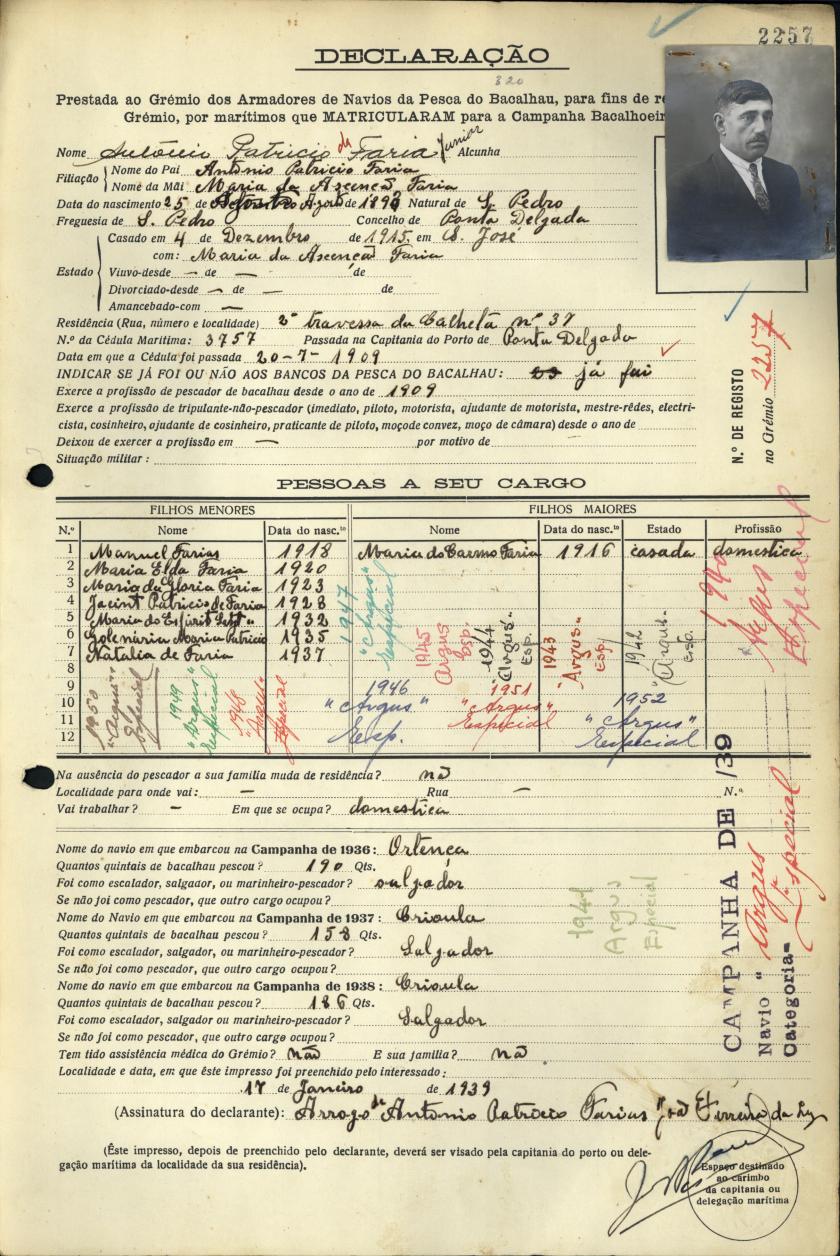 2257
DECLARAÇÃO
320
Prestada ao Grémio dos Armadores de Navios da Pesca do Bacalhau, para fins de re
Grémio, por marítimos que MATRICULARAM para a Campanha Bacalhoeir
Nome António Patricio de Faria Junior Alcunha
Filiação
Nome do Pai António Patricio Faria
Nome da Mãi Maria da Ascenção Faria
Data do nascimento 25 de Agosto de 189 Natural de S. Pedro
Freguesia de S. Pedro Concelho de Ponta Delgada
Estado
Casado em 4 de Dezembro de 1915 em S. José
com: Maria da Ascenção Faria
Viuvo-desde — de — de
Divorciado-desde — de — de
Amancebado-com —
Residência (Rua, número e localidade) 2ª travessa da Calheta nº 37
N.º da Cédula Maritima: 3757 Passada na Capitania do Porto de Ponta Delgada
Data em que a Cédula foi passada 20-7-1909
INDICAR SE JÁ FOI OU NÃO AOS BANCOS DA PESCA DO BACALHAU: já fui
Exerce a profissão de pescador de bacalhau desde o ano de 1909
Exerce a profissão de tripulante-não-pescador (imediato, piloto, motorista, ajudante de motorista, mestre-rêdes, electri-
cista, cosinheiro, ajudante de cosinheiro, praticante de piloto, moço de convez, moço de câmara) desde o ano de
Deixou de exercer a profissão em — por motivo de
Situação militar:
N.º DE REGISTO
no Grémio 2257
PESSOAS A SEU CARGO
FILHOS MENORES FILHOS MAIORES
N.º Nome Data do nasc.to Nome Data do nasc.to Estado Profissão
1 Manuel Farias 1918 Maria do Carmo Faria 1916 casada domestica
2 Maria Elda Faria 1920
3 Maria da Gloria Faria 1923
4 Jacint Patricio de Faria 1928
5 Maria do Espirit Sant " 1932
6 Maria Patricio 1935
7 Natalia de Faria 1937
8
9
10
11
12
1947 "Argus" Especial
1945 Argus Esp.
1944 "Argus" Esp.
1943 "Argus" Esp
1942 "Argus" Esp.
1940 Argus Especial
1950 "Argus" Especial
1949 "Argus" Especial
1948 "Argus" Especial
1946 "Argus" Esp.
1951 "Argus" Especial
1952 "Argus" Especial
Na ausência do pescador a sua familia muda de residência? nã
Localidade para onde vai: — Rua — N.º
Vai trabalhar? — Em que se ocupa? domestica
Nome do navio em que embarcou na Campanha de 1936: Ortença
Quantos quintais de bacalhau pescou? 190 Qts.
Foi como escalador, salgador, ou marinheiro-pescador? salgadór
Se não foi como pescador, que outro cargo ocupou?
Nome do Navio em que embarcou na Campanha de 1937: Crioula
Quantos quintais de bacalhau pescou? 158 Qts.
Foi como escalador, salgador, ou marinheiro-pescador? Salgador
Se não foi como pescador, que outro cargo ocupou?
Nome do navio em que embarcou na Campanha de 1938: Crioula
Quantos quintais de bacalhau pescou? 186 Qts.
Foi como escalador, salgador ou marinheiro-pescador? Salgador
Se não foi como pescador, que outro cargo ocupou?
Tem tido assistência médica do Grémio? Não E sua familia? nã
Localidade e data, em que êste impresso foi preenchido pelo interessado:
17 de Janeiro de 1939
1941 Argus Especial
CAMPANHA DE 1939
Navio "Argus
Categoria- Especial
(Assinatura do declarante): Arrogo de António Patricio Farias José Ferreira da Luz
(Êste impresso, depois de preenchido pelo declarante, deverá ser visado pela capitania do porto ou dele-
gação marítima da localidade da sua residência).
Espaço destinado
ao carimbo
da capitania ou
delegação marítima